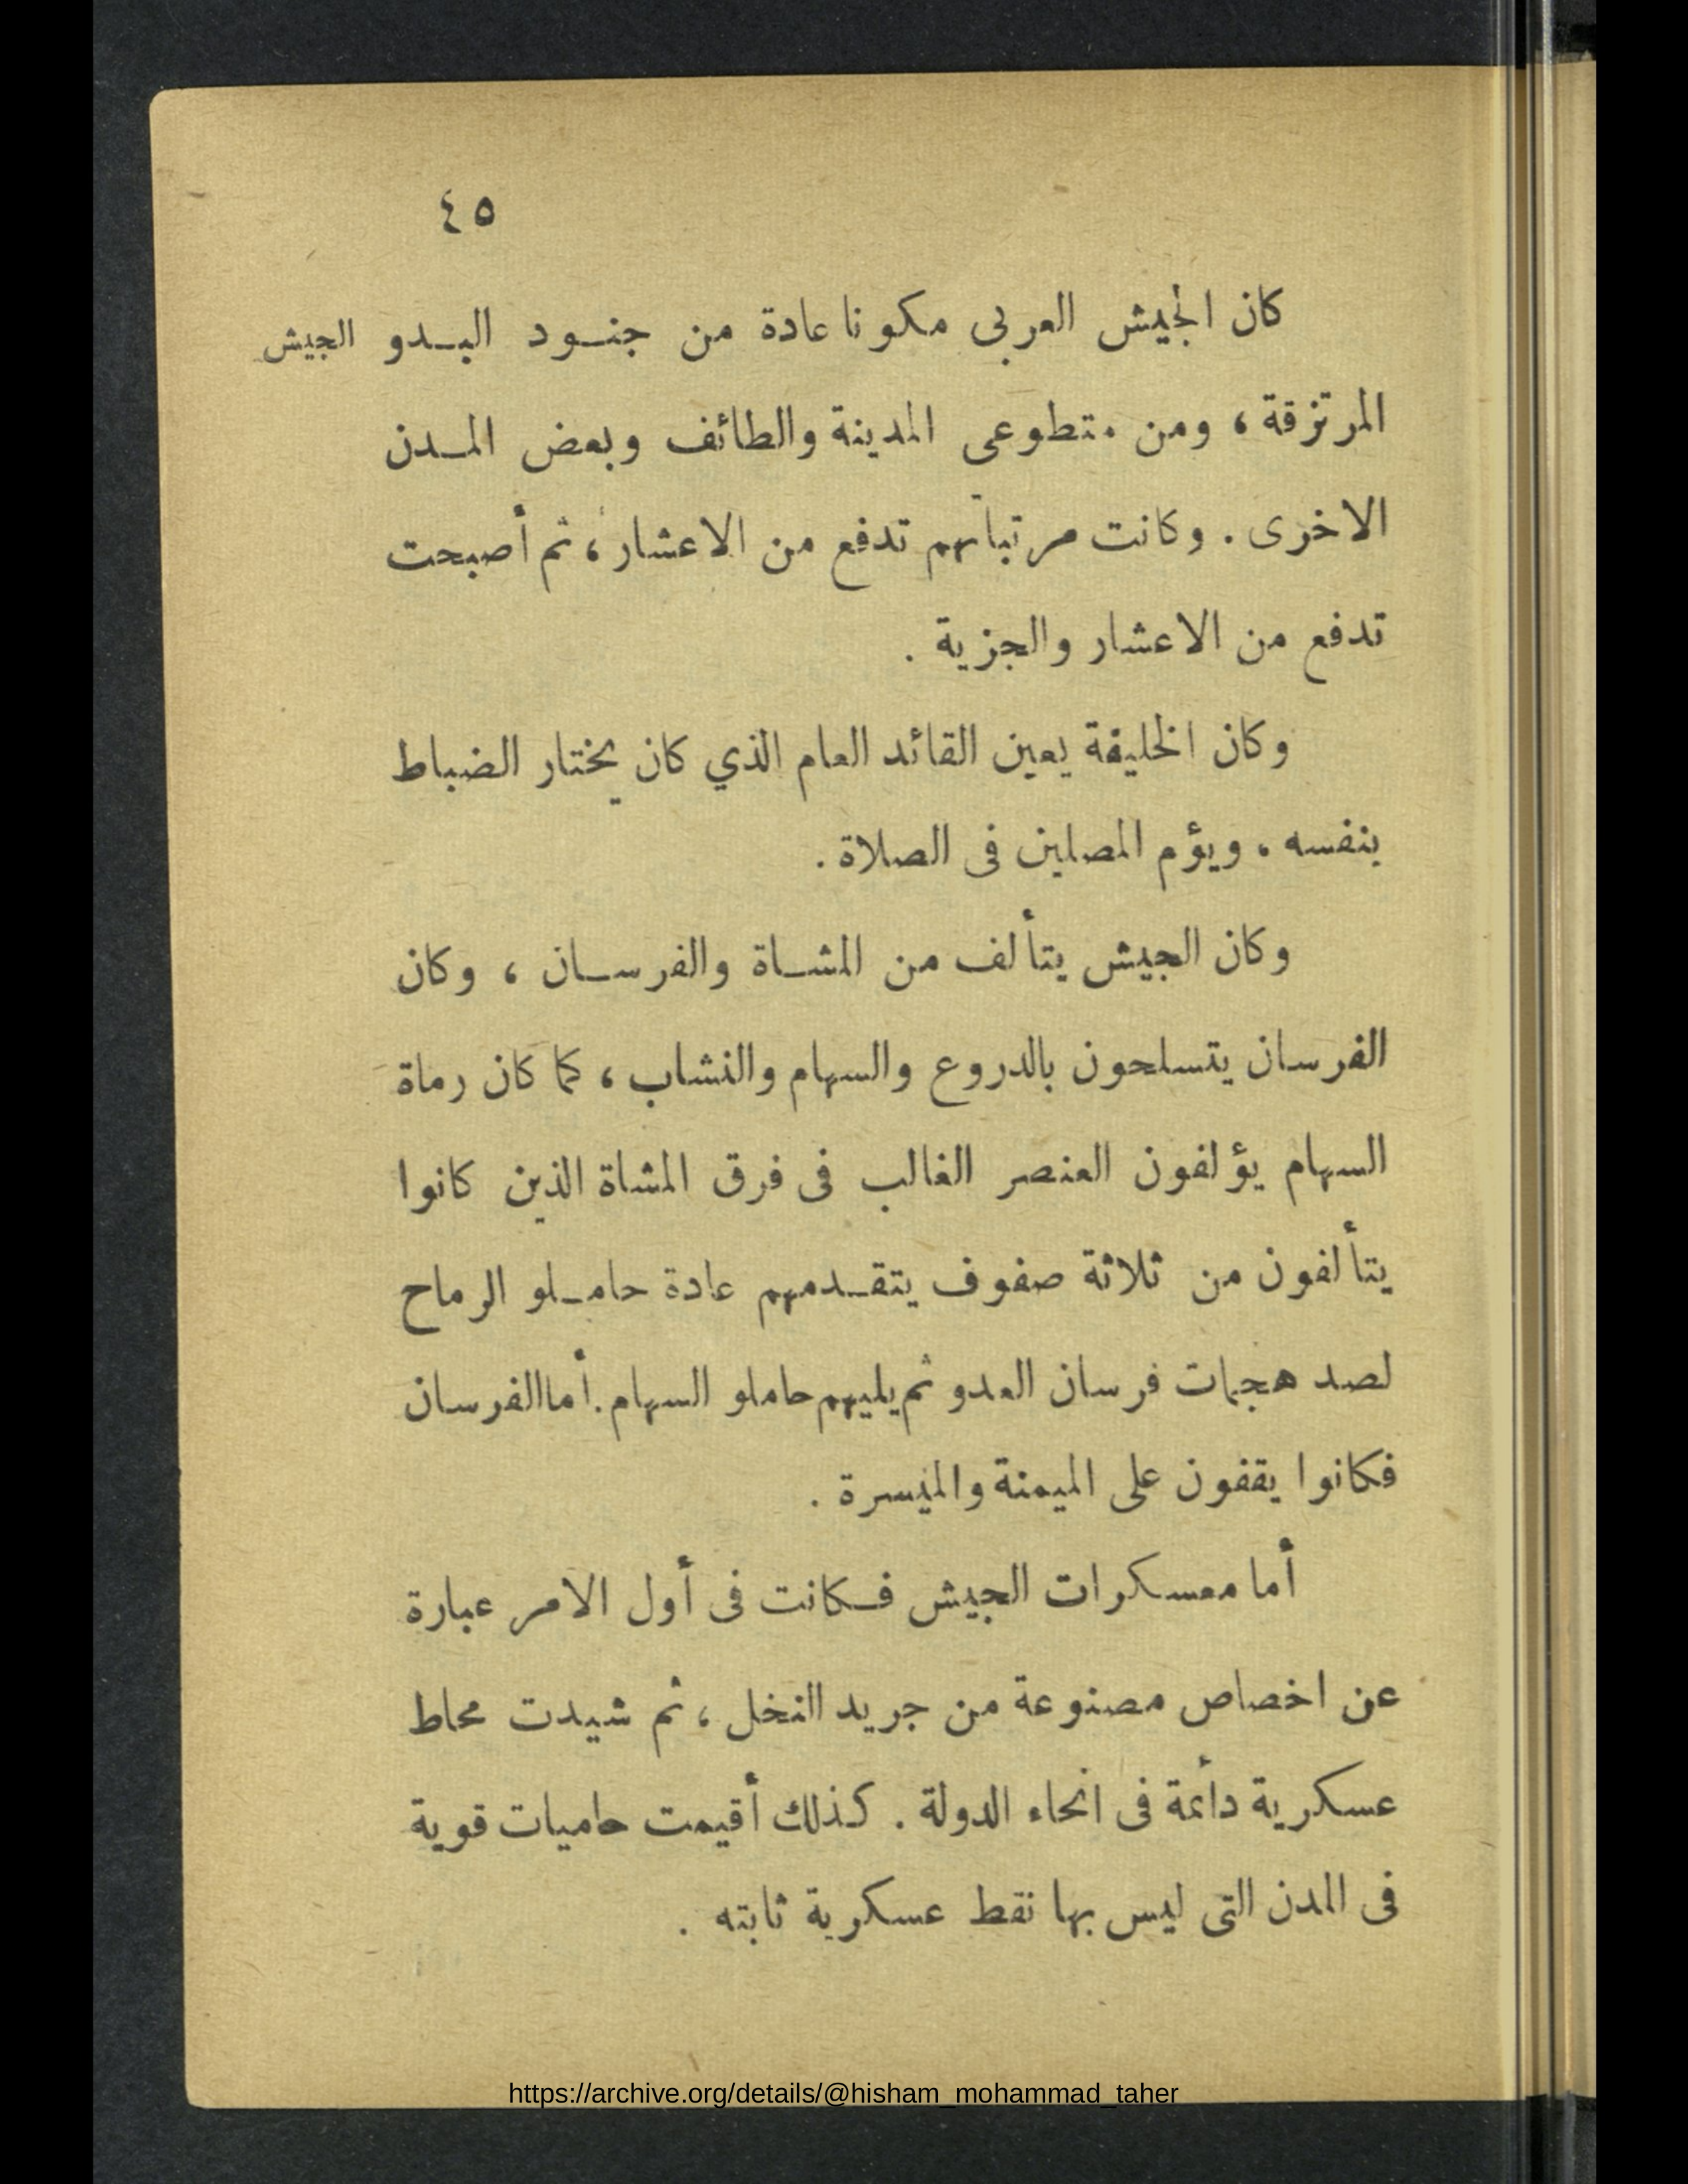 ٤٥
كان الجيش العربى مكونا عادة من جنـود البـدو الجيش
المرتزقة ، ومن متطوعى المدينة والطائف وبعض المـدن
الاخرى . وكانت مرتباتهم تدفع من الاعشار ، ثم أصبحت
تدفع من الاعشار والجزية .
وكان الخليفة يعين القائد العام الذي كان يختار الضباط
بنفسه ، ويؤم المصلين فى الصلاة .
وكان الجيش يتألف من المشـاة والفرسـان ، وكان
الفرسان يتسلحون بالدروع والسهام والنشاب ، كما كان رماة
السهام يؤلفون العنصر الغالب فى فرق المشاة الذين كانوا
يتألفون من ثلاثة صفوف يتقـدمهم عادة حامـلو الرماح
لصد هجمات فرسان العدو ثم يليهم حاملو السهام . أما الفرسان
فكانوا يقفون على الميمنة والميسرة .
أما معسكرات الجيش فـكانت فى أول الامر عبارة
عن اخصاص مصنوعة من جريد النخل ، ثم شيدت محاط
عسكرية دائمة فى انحاء الدولة . كذلك أقيمت حاميات قوية
فى المدن التى ليس بها نقط عسكرية ثابته .
https://archive.org/details/@hisham_mohammad_taher